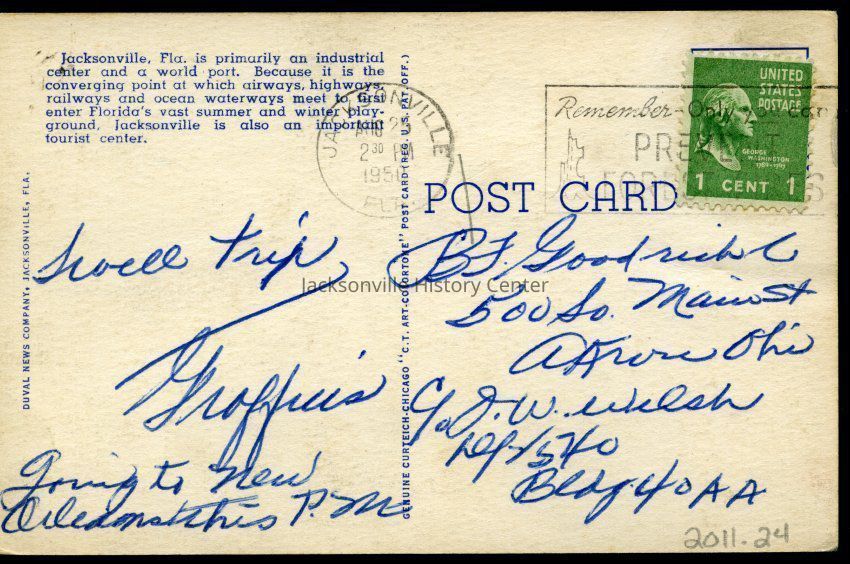 Jacksonville, Fla. is primarily an industrial
center and a world port. Because it is the
converging point at which airways, highways,
railways and ocean waterways meet to first
enter Florida's vast summer and winter play-
ground, Jacksonville is also an important
tourist center.
JACKSONVILLE
AUG 23
2 30 PM
FLA.
Remember Only You can
UNITED
STATES
POSTAGE
GEORGE
WASHINGTON
1789-1797
1 CENT 1
POST CARD
DUVAL NEWS COMPANY, JACKSONVILLE, FLA.
GENUINE CURTEICH-CHICAGO "C.T. ART-COLORTONE" POST CARD (REG. U.S. PAT. OFF.)
Swell trip
Going to New
Orleans this P.M.
B F Goodrich C
500 So. Main St
Akron Ohio
c/o J. W. Welsh
1540
Bldg. 40 AA
Jacksonville History Center
2011.24